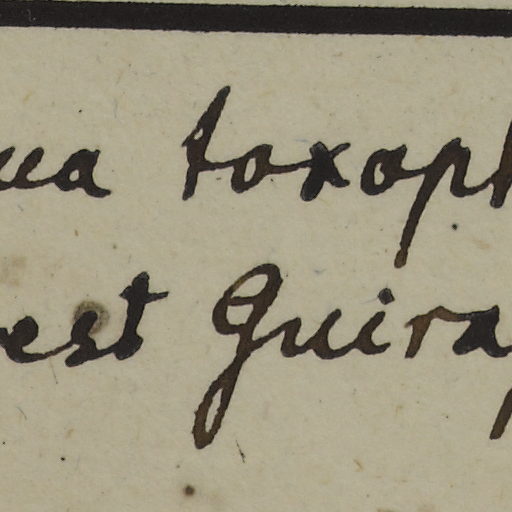 ua toxoph
est Guira